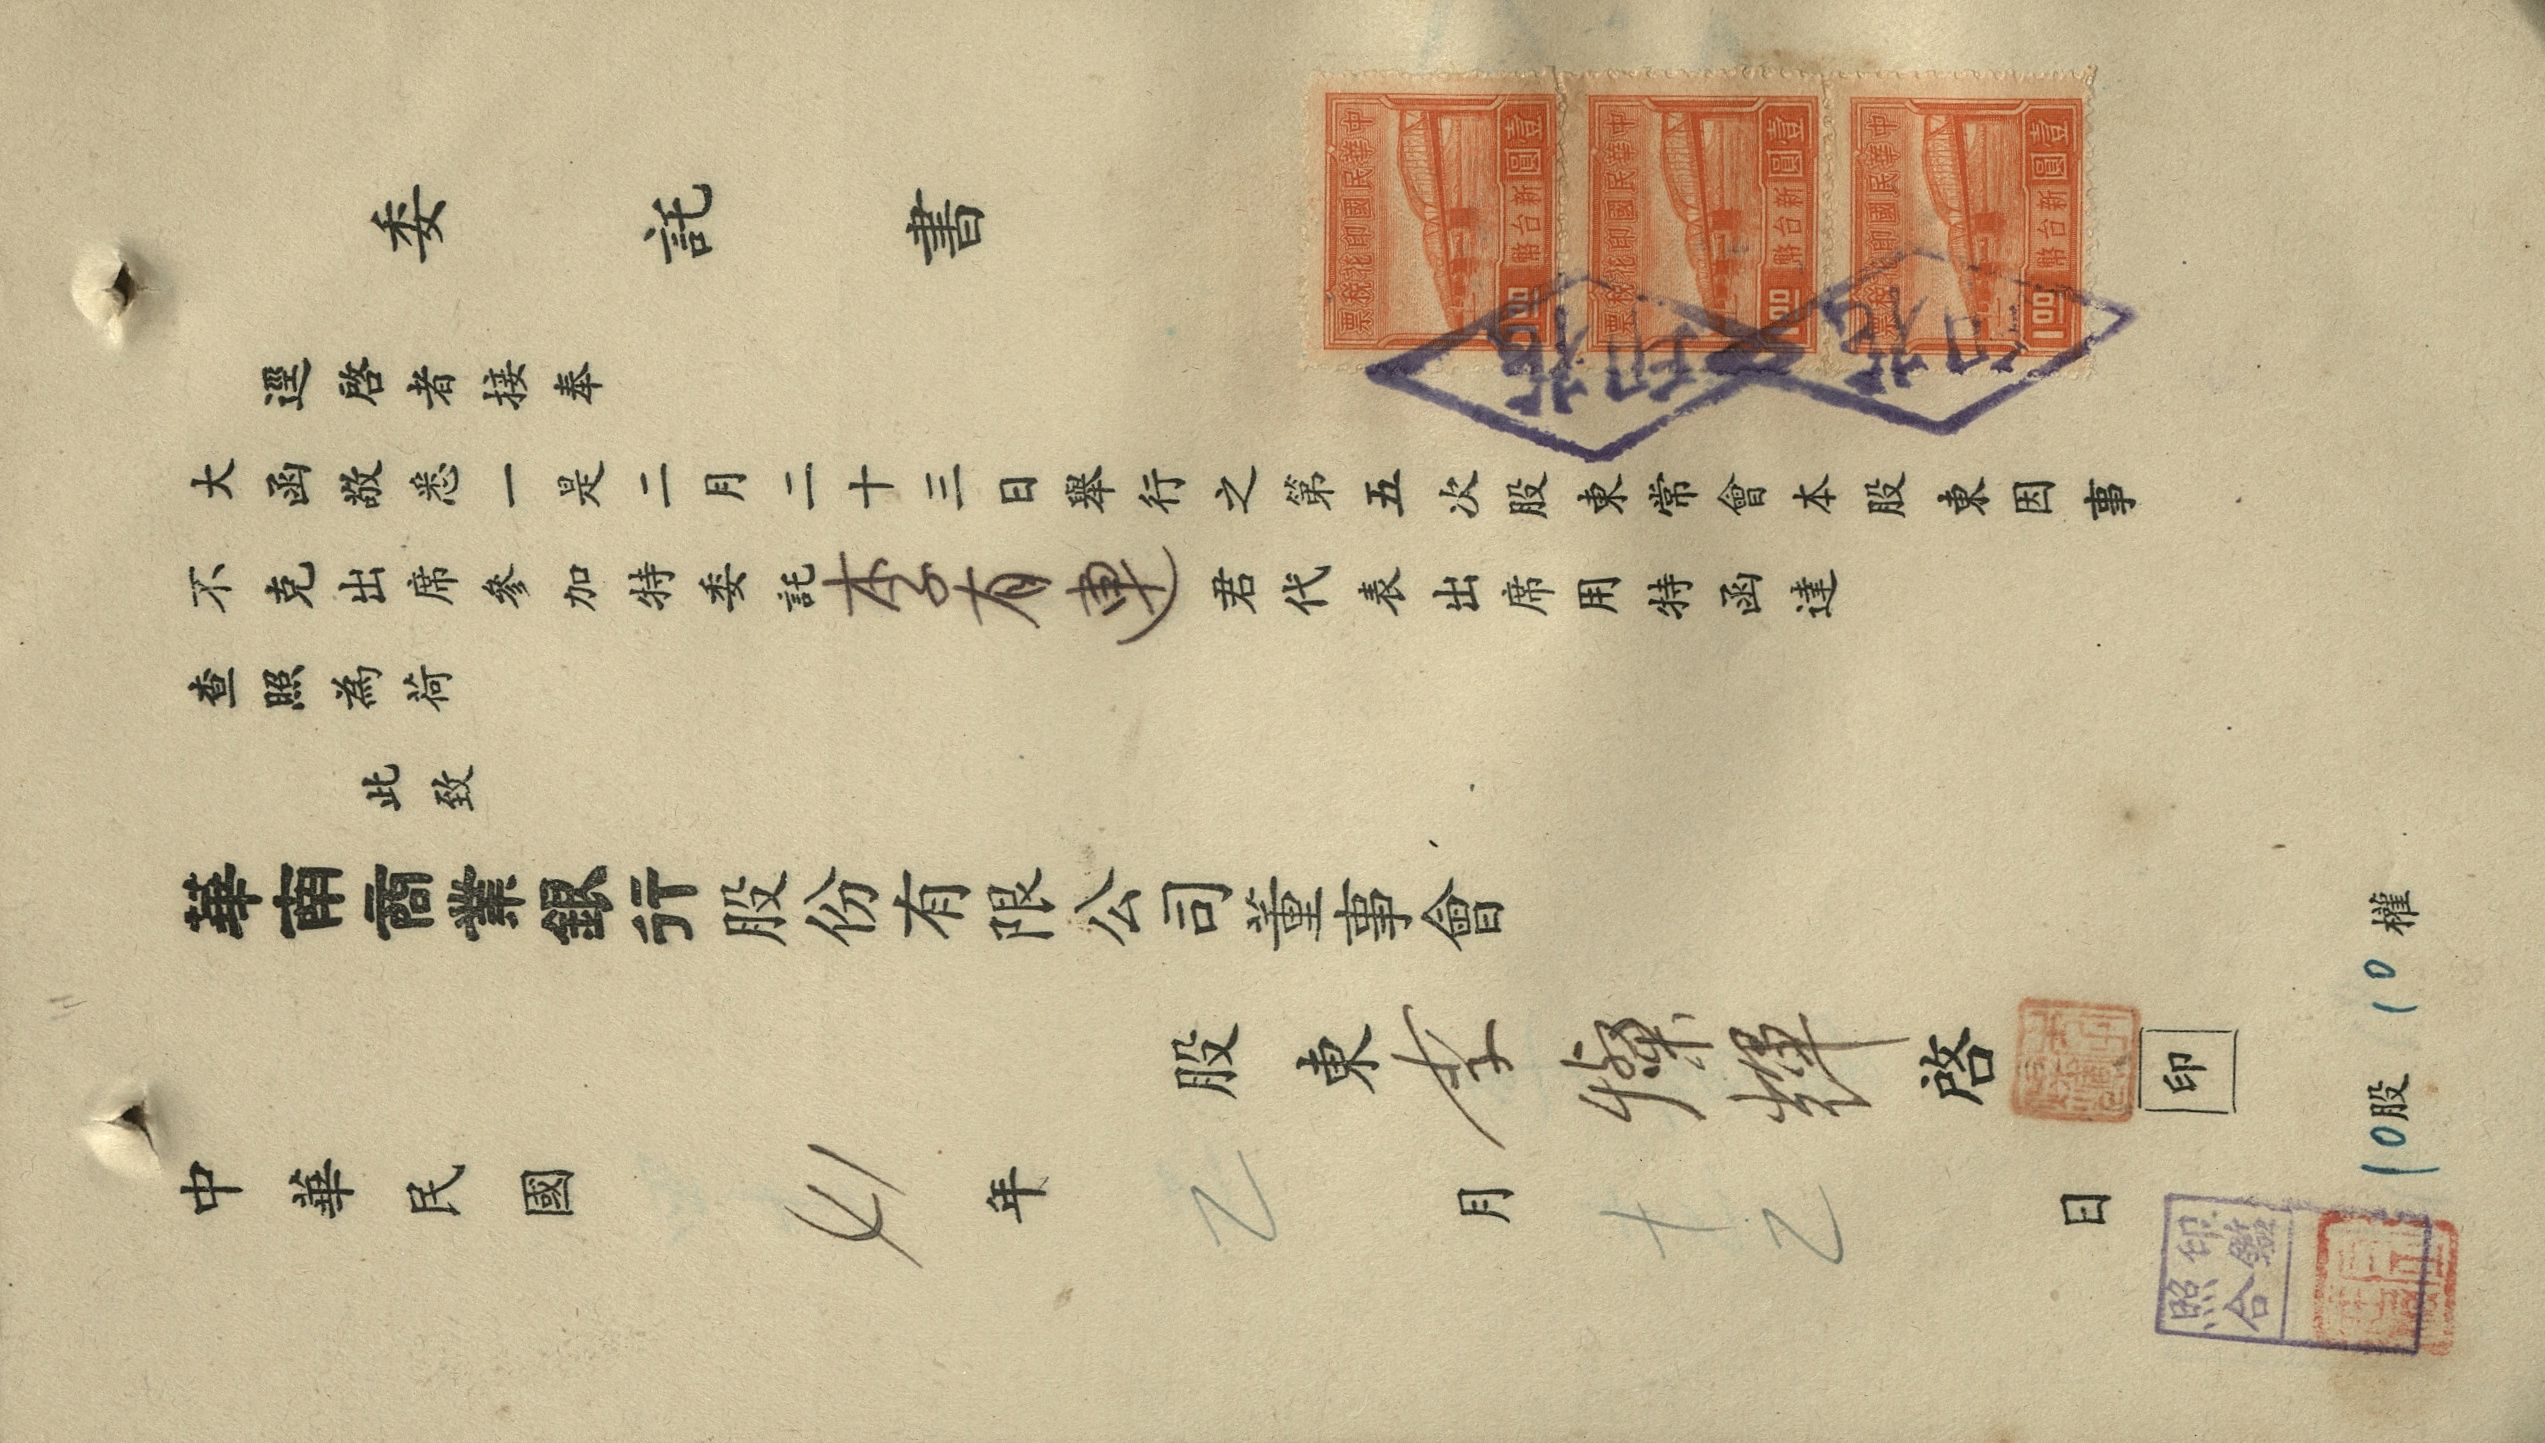 委託書
逕啓者接奉
大函敬悉一是二月二十三日舉行之第五次股東常會本股東因事
不克出席參加特委託李有連君代表出席用特函達
查照為荷
此致
華南商業銀行股份有限公司董事會
股東李 啓
印
中華民國41年2月十2日
10股10權
中華民國印花稅票
壹圓
新台幣
1.00
中華民國印花稅票
壹圓
新台幣
1.00
中華民國印花稅票
壹圓
新台幣
1.00
印花
印花
印鑑
照合